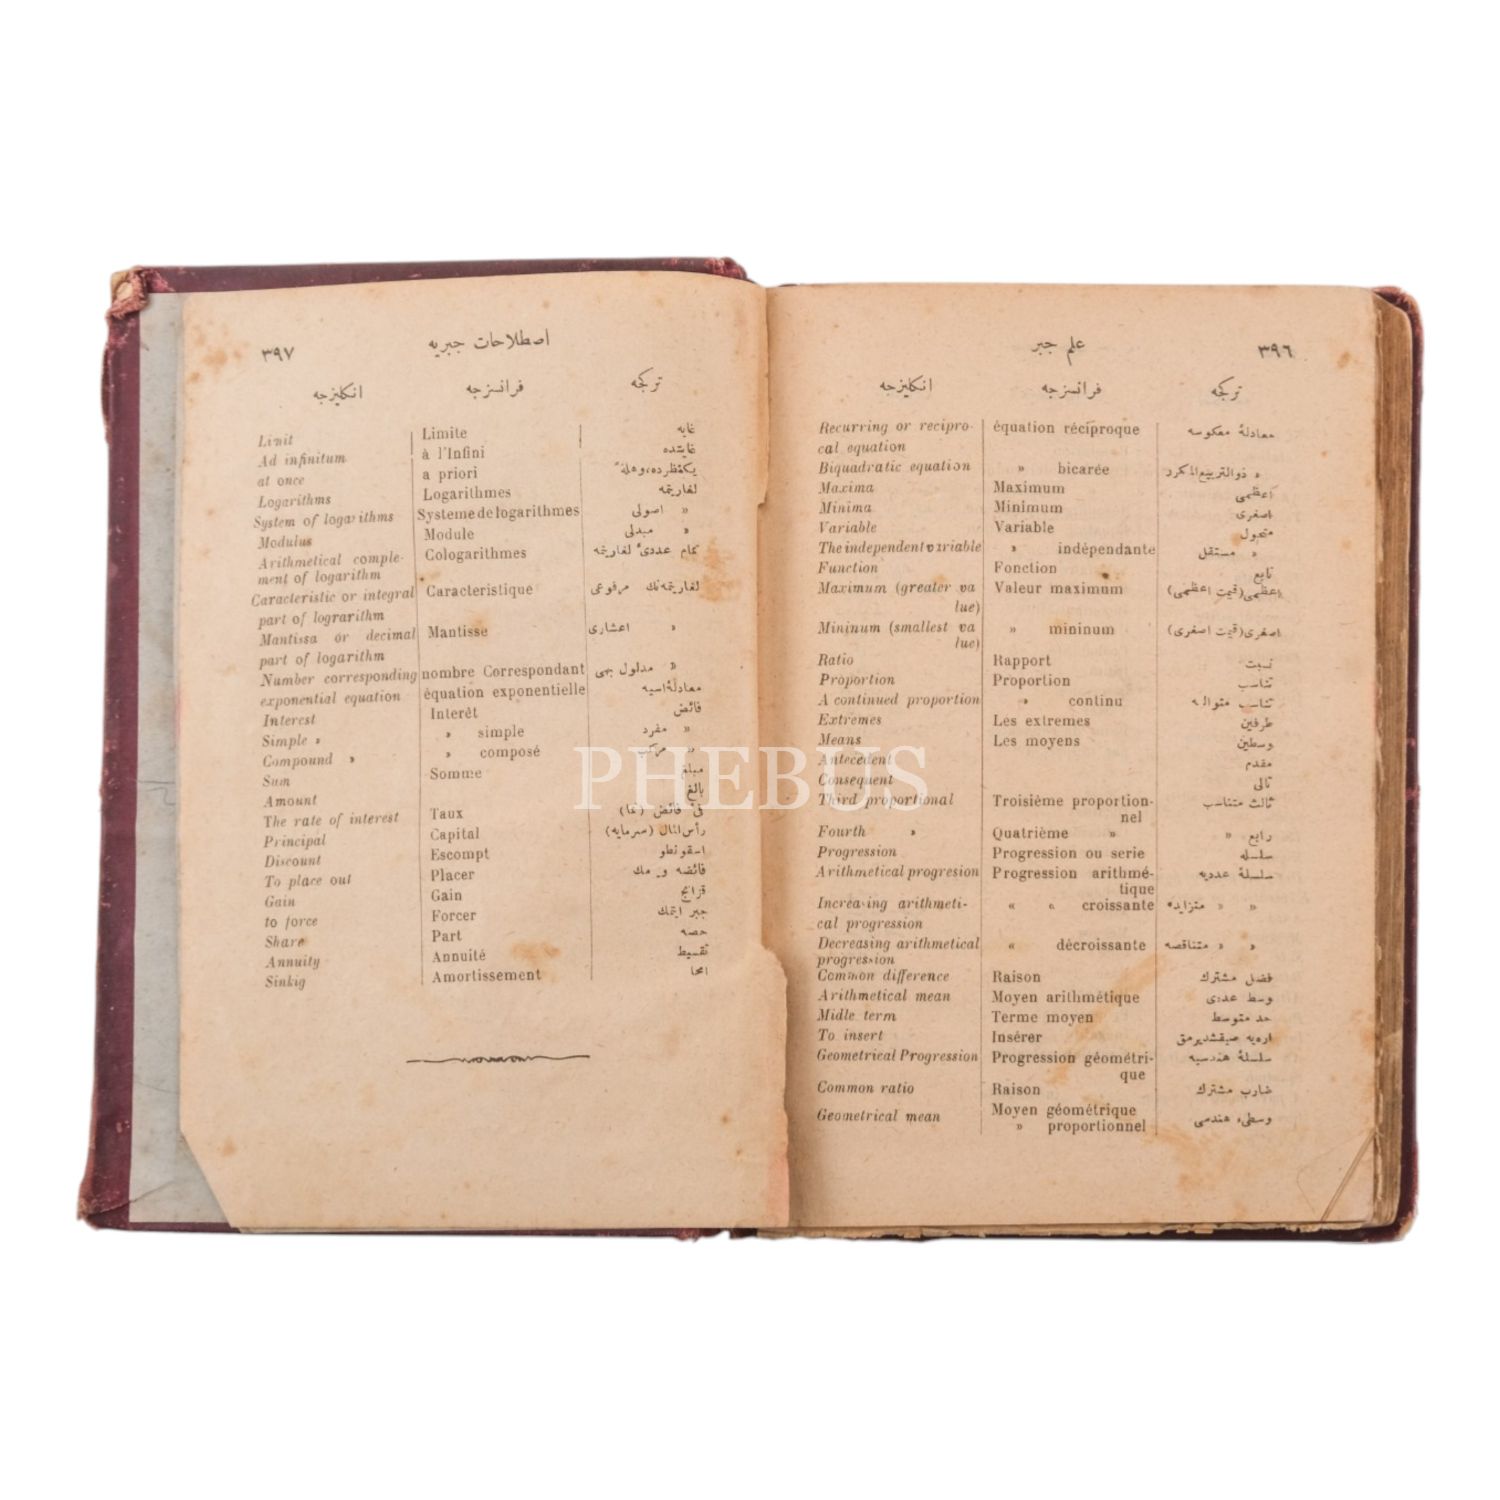 ٣٩٦
علم جبر
تركجه فرانسزجه انكليزجه
Recurring or recipro- équation réciproque معادلهٔ معكوسه
cal equation
Biquadratic equation » bicarée » ذوالتربيع المكرر
Maxima Maximum اعظمى
Minima Minimum اصغرى
Variable Variable متحول
The independent variable » indépendante » مستقل
Function Fonction تابع
Maximum (greater va Valeur maximum اعظمى (قيمت اعظمى)
lue)
Mininum (smallest va » mininum اصغرى (قيمت اصغرى)
lue)
Ratio Rapport نسبت
Proportion Proportion تناسب
A continued proportion » continu تناسب متواليه
Extremes Les extremes طرفين
Means Les moyens وسطين
Antecedent مقدم
Consequent تالى
Third proportional Troisième proportion- ثالث متناسب
nel
Fourth » Quatrième » رابع »
Progression Progression ou serie سلسله
Arithmetical progresion Progression arithmé- سلسلهٔ عدديه
tique
Increasing arithmeti- « « croissante » » متزايده
cal progression
Decreasing arithmetical « décroissante » » متناقصه
progression
Common difference Raison فضل مشترك
Arithmetical mean Moyen arithmétique وسط عددى
Midle term Terme moyen حد متوسط
To insert Insérer ارەيه صيقشديرمق
Geometrical Progression Progression géométri- سلسلهٔ هندسيه
que
Common ratio Raison ضارب مشترك
Geometrical mean Moyen géométrique وسطىء هندسى
» proportionnel
٣٩٧
اصطلاحات جبريه
تركجه فرانسزجه انكليزجه
Limit Limite غايه
Ad infinitum à l'Infini غايتده
at once a priori يكنظرده، وهلةً
Logarithms Logarithmes لغاريتمه
System of logarithms Systeme de logarithmes » اصولى
Modulus Module » مبدلى
Arithmetical comple- Cologarithmes تمام عددئ لغاريتمه
ment of logarithm
Caracteristic or integral Caracteristique لغاريتمه نك مرفوعى
part of lograrithm
Mantissa or decimal Mantisse » اعشارى
part of logarithm
Number corresponding nombre Correspondant » مدلول بهى
exponential equation équation exponentielle معادلهٔ اسيه
Interest Interêt فائض
Simple » » simple » مفرد
Compound » » composé » مركب
Sum Somme مبلغ
Amount بالغ
The rate of interest Taux فئ فائض (نما)
Principal Capital رأس المال (سرمايه)
Discount Escompt اسقونطو
To place out Placer فائضه ويرمك
Gain Gain قزانج
to force Forcer جبر ايتمك
Share Part حصه
Annuity Annuité تقسيط
Sinkig Amortissement امحا
PHEBUS